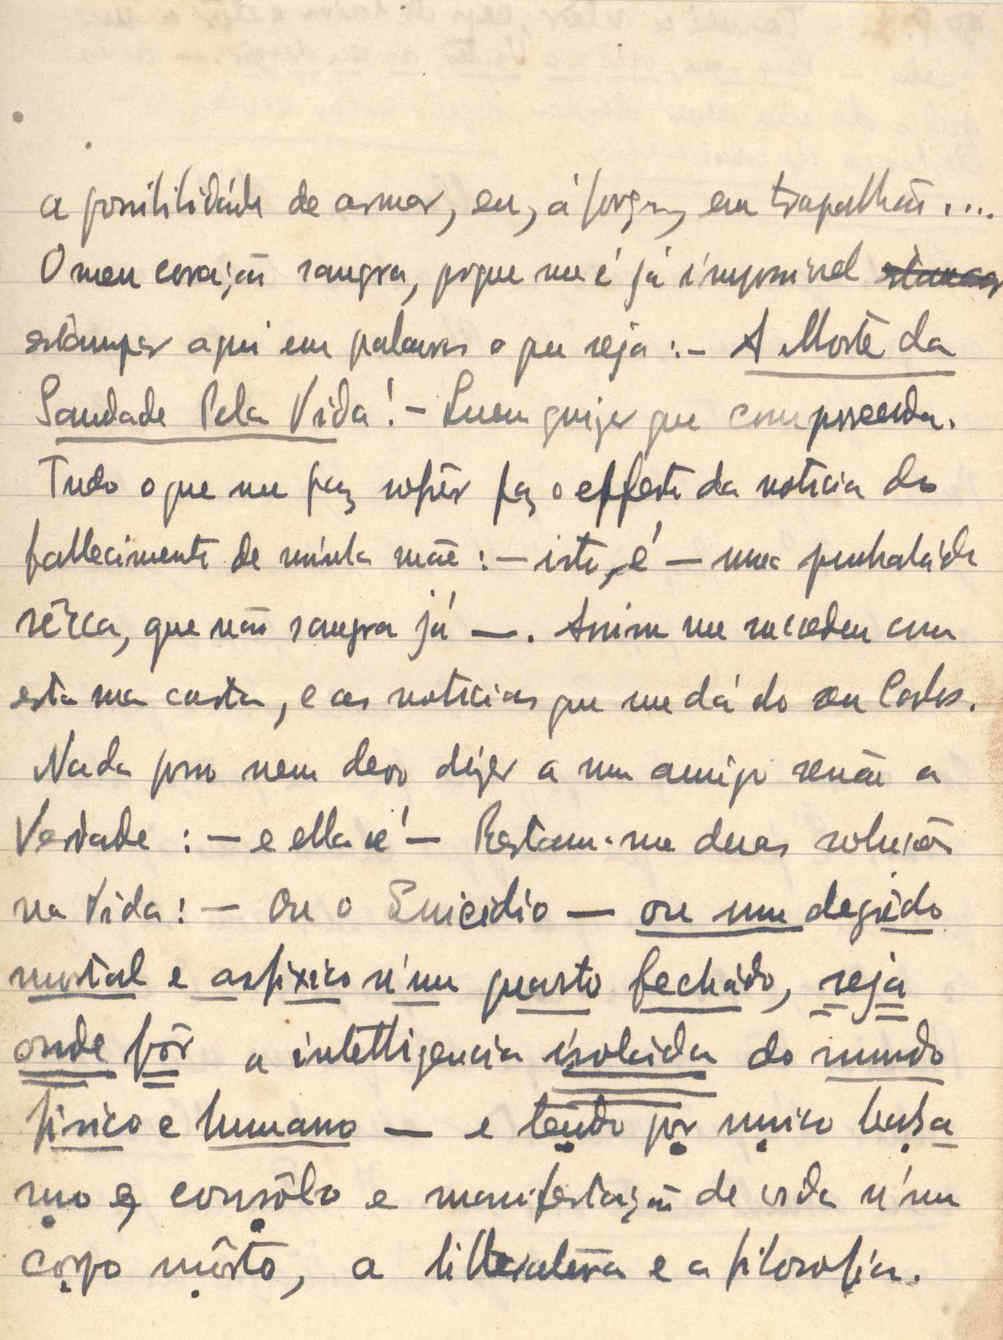 a possibilidáde de asmar, eu, á força, em trapalhão....
O meu coração sangra, porque me é já impossivel
estampar aqui em palavras o que seja :- A Morte da
Saudade Pela Vida! - Quem quizer que comprenda.
Tudo o que me faz sofrêr faz o effeito da noticia do
fallecimento de minha mãe :- isto, é - uma punhaláda
sêcca, que não sangra já -. Assim me succedeu com
esta sua carta, e as noticias que me dá do seu Carlos.
Nada posso nem devo dizer a um amigo senão a
Verdade : - e ella é! - Restam-me duas soluções
na Vida! - Ou o Suicidio - ou um degrêdo
mortal e asfixico n'um quarto fechádo, seja
onde fôr a intelligencia isoláda do mundo
fisico e humano - e tendo por unico balsa
mo e consôlo e manifestação de vida n'um
corpo môrto, a litteratúra e a filosofia.